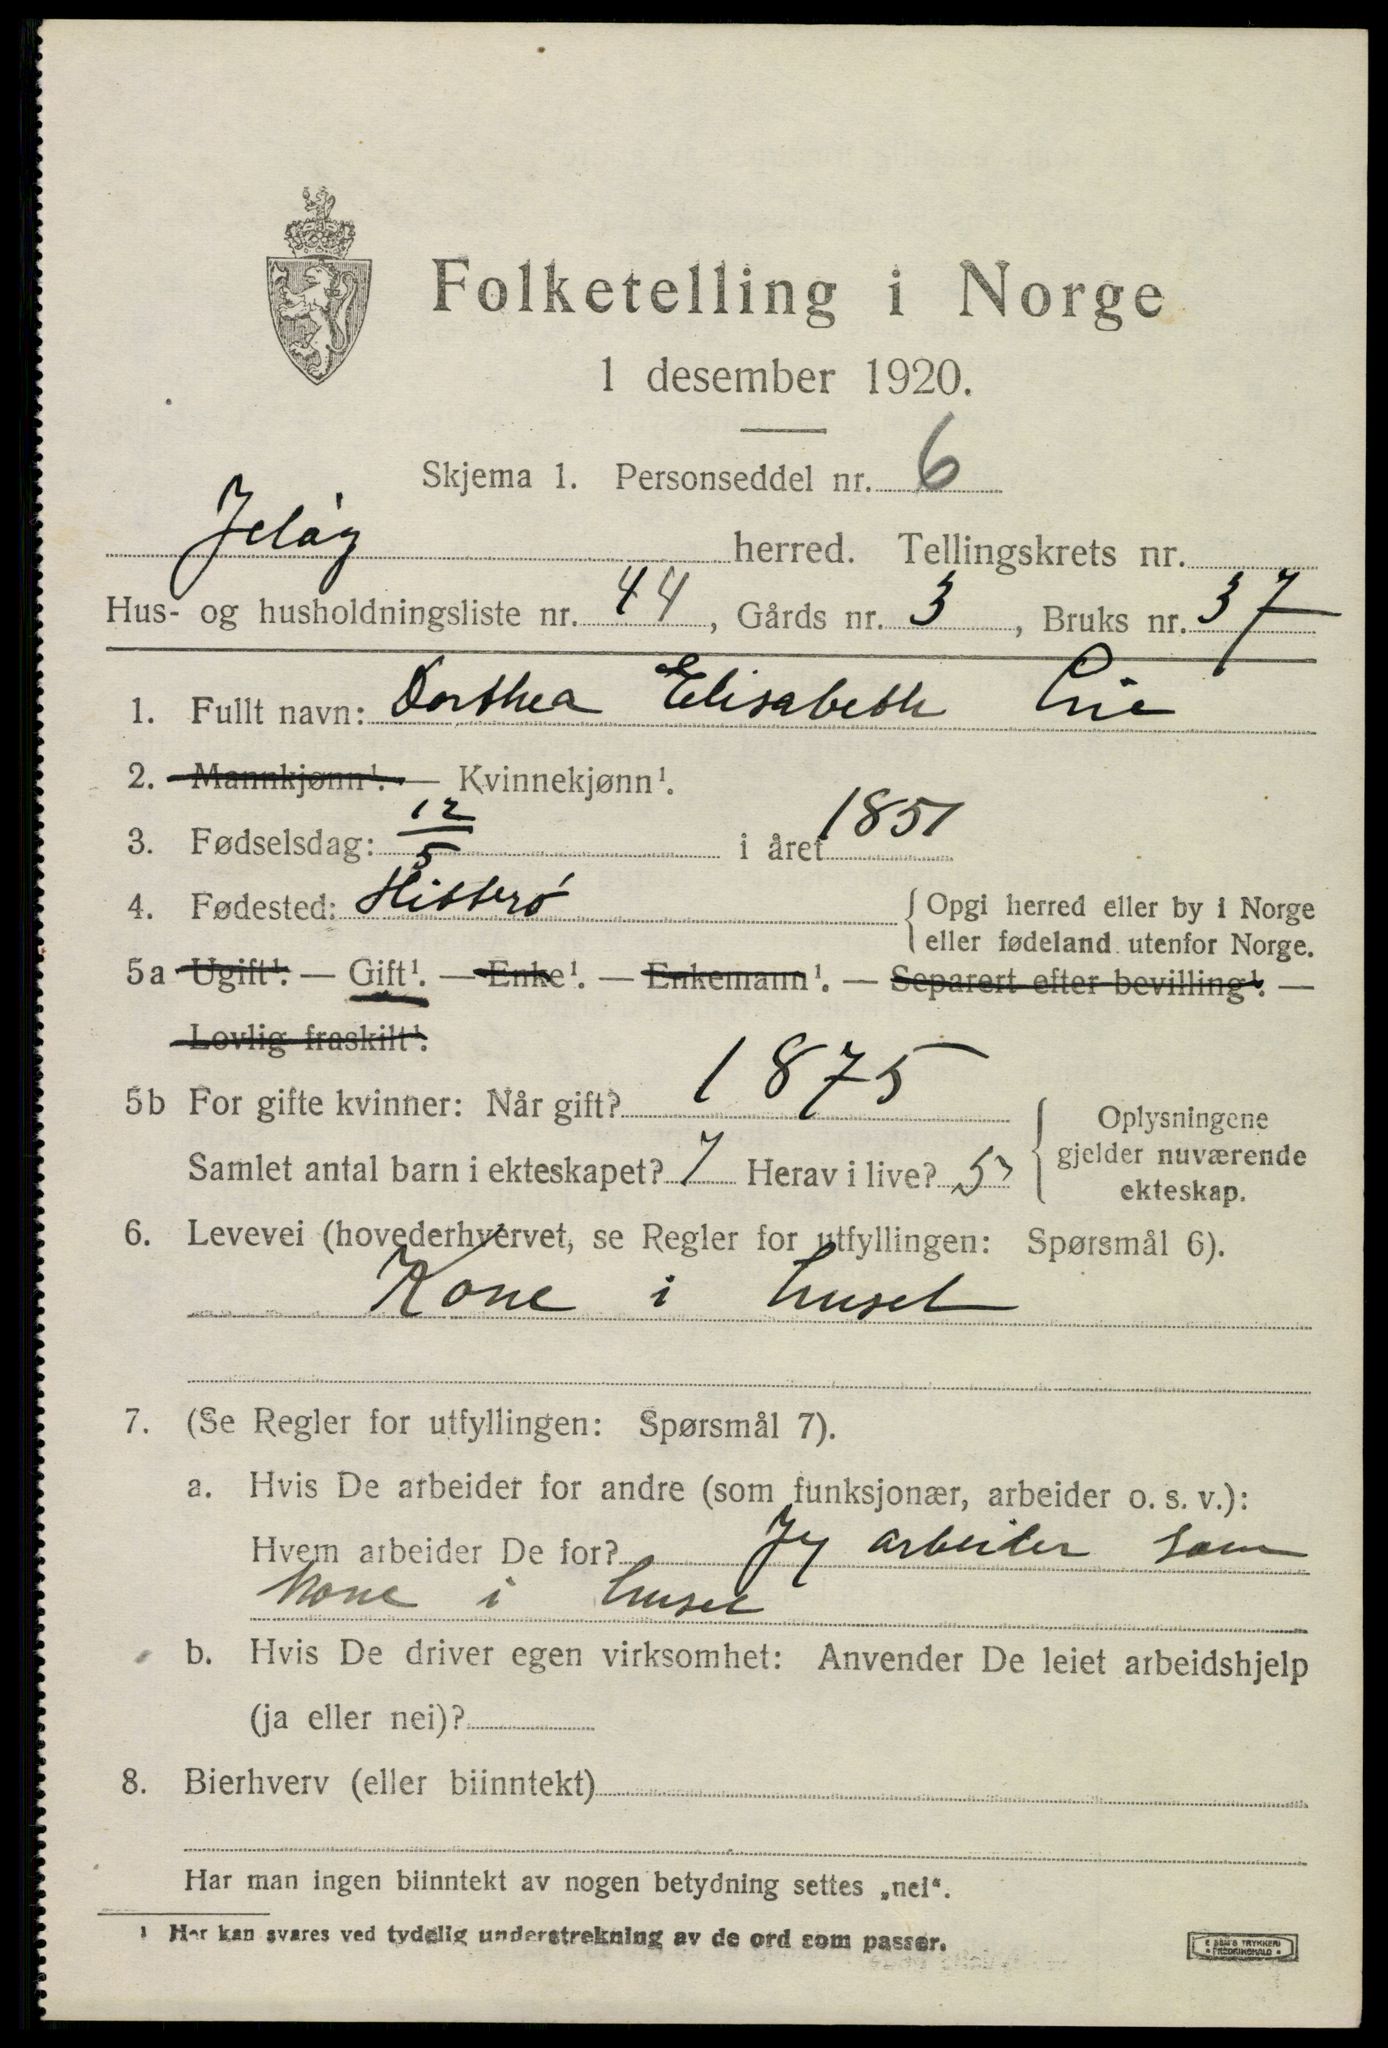 Folketelling i Norge
1 desember 1920.
Skjema 1. Personseddel nr. 6
Jeløy herred. Tellingskrets nr.
Hus- og husholdningsliste nr. 44, Gårds nr. 3, Bruks nr. 37
1. Fullt navn: Dorthea Elisabeth Lie
2. Mannkjønn¹. — Kvinnekjønn¹.
3. Fødselsdag: 12/5 i året 1851
4. Fødested: Hitterø { Opgi herred eller by i Norge
eller fødeland utenfor Norge.
5a Ugift¹. — Gift¹. — Enke¹. — Enkemann¹. — Separert efter bevilling¹. —
Lovlig fraskilt¹.
5b For gifte kvinner: Når gift? 1875
Samlet antal barn i ekteskapet? 7 Herav i live? 5
{ Oplysningene
gjelder nuværende
ekteskap.
6. Levevei (hovederhvervet, se Regler for utfyllingen: Spørsmål 6).
Kone i huset
7. (Se Regler for utfyllingen: Spørsmål 7).
a. Hvis De arbeider for andre (som funksjonær, arbeider o. s. v.):
Hvem arbeider De for? Jeg arbeider som
kone i huset
b. Hvis De driver egen virksomhet: Anvender De leiet arbeidshjelp
(ja eller nei)?
8. Bierhverv (eller biinntekt)
Har man ingen biinntekt av nogen betydning settes „nei“.
¹ Her kan svares ved tydelig understrekning av de ord som passer.
E. SEM'S TRYKKERI
FREDRIKSHALD